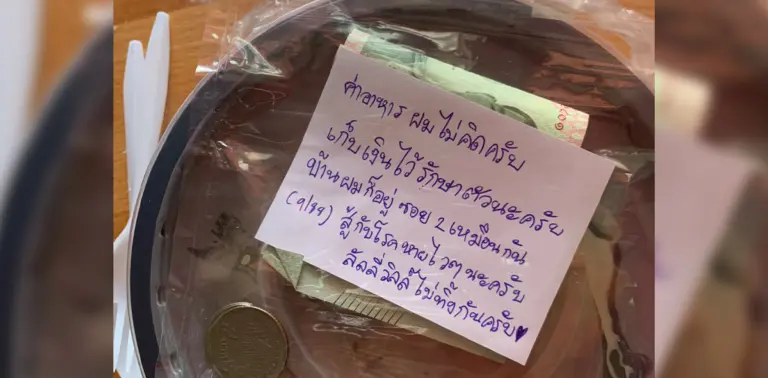 ค่าอาหาร ผมไม่คิดครับ
เก็บเงินไว้รักษาตัวนะครับ
บ้านผมก็อยู่ ซอย 2 เหมือนกัน
(9/99) สู้กับโรคหายไวๆ นะครับ
ลัลลี่วิลล์ไม่ทิ้งกันครับ♥